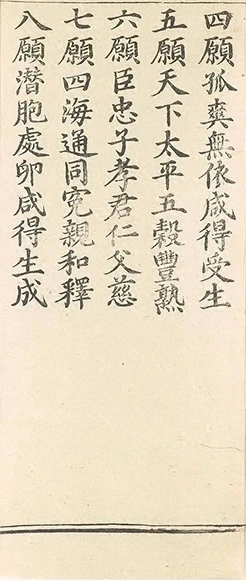 四願孤爽無依咸得受生
五願天下太平五穀豐熟
六願臣忠子孝君仁父慈
七願四海通同寃親和釋
八願潛胞處卵咸得生成